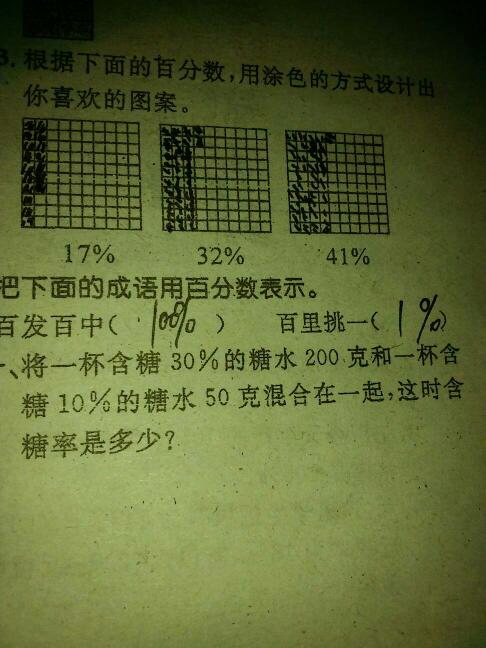 3. 根据下面的百分数,用涂色的方式设计出
你喜欢的图案。
17% 32% 41%
把下面的成语用百分数表示。
百发百中( 100% ) 百里挑一( 1% )
一、将一杯含糖 30%的糖水 200 克和一杯含
糖 10%的糖水 50 克混合在一起,这时含
糖率是多少?